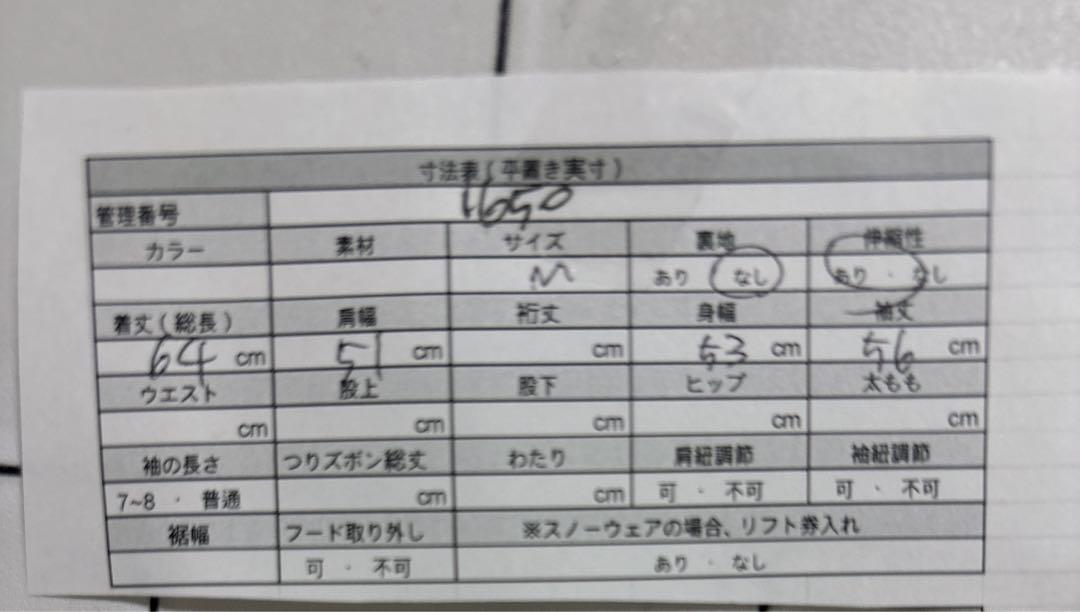 寸法表(平置き実寸)
管理番号 1650
カラー 素材 サイズ 裏地 伸縮性
M あり なし あり ・ なし
着丈(総長) 肩幅 裄丈 身幅 袖丈
64 cm 51 cm cm 53 cm 56 cm
ウエスト 股上 股下 ヒップ 太もも
cm cm cm cm cm
袖の長さ つりズボン総丈 わたり 肩紐調節 袖紐調節
7~8 ・ 普通 cm cm 可 ・ 不可 可 ・ 不可
裾幅 フード取り外し ※スノーウェアの場合、リフト券入れ
可 ・ 不可 あり ・ なし